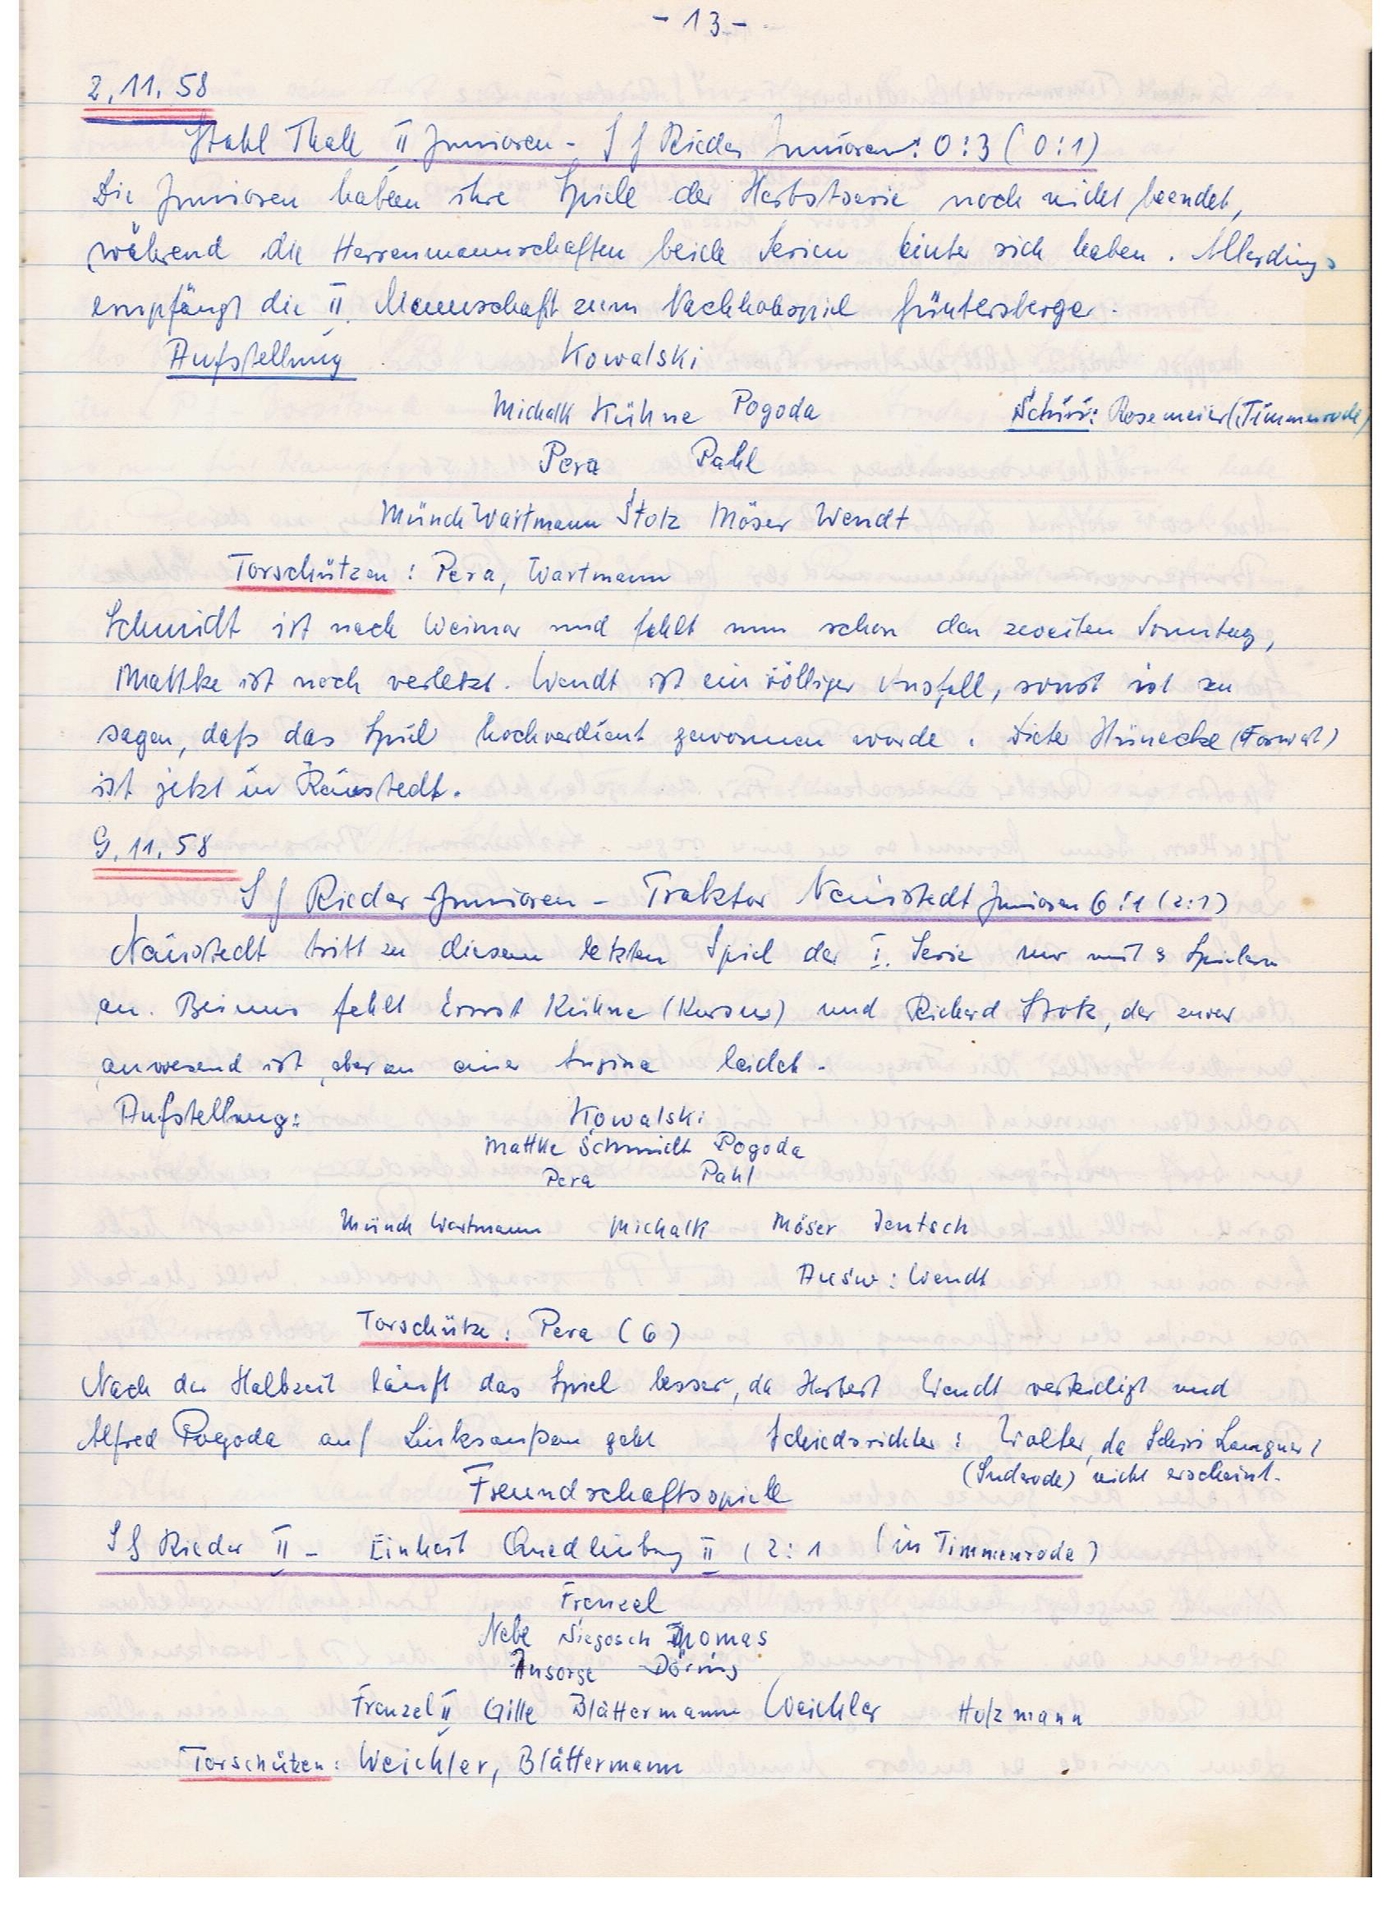 - 13 -
2.11.58
Stahl Thale II Junioren - SG Rieder Junioren: 0:3 (0:1)
Die Junioren haben ihre Spiele der Herbstserie noch nicht beendet,
während die Herrenmannschaften beide Serien hinter sich haben. Allerdings
empfängt die II. Mannschaft zum Nachholspiel Güntersberge.
Aufstellung Kowalski
Michalk Kühne Pogoda Schiri: Rosemeier (Timmenrode)
Pera Pahl
Münch Wartmann Stolz Möser Wendt
Torschützen: Pera, Wartmann
Schmidt ist nach Weimar und fehlt nun schon den zweiten Sonntag,
Mattke ist noch verletzt. Wendt ist ein völliger Ausfall, sonst ist zu
sagen, daß das Spiel hochverdient gewonnen wurde. Dieter Hünecke (Torwat)
ist jetzt in
9.11.58
SG Rieder Junioren - Traktor Neinstedt Junioren 6:1 (2:1)
Neinstedt tritt zu diesem letzten Spiel der I. Serie nur mit 9 Spielern
an. Bei uns fehlt Ernst Kühne (Kursus) und Richard Stolz, der zwar
anwesend ist, aber an einer Angina leidet.
Aufstellung: Kowalski
Mattke Schmidt Pogoda
Pera Pahl
Münch Wartmann Michalk Möser Deutsch
Ausw: Wendt
Torschütze: Pera (6)
Nach der Halbzeit läuft das Spiel besser, da Herbert Wendt verteidigt und
Alfred Pogoda auf Linksaußen geht Schiedsrichter: Walter, da Schiri
(Suderode) nicht erscheint.
Freundschaftsspiele
SG Rieder II - Einheit Quedlinburg II (2:1 (in Timmenrode)
Frenzel
Nebe Niegosch Thomas
Ansorge Döring
Frenzel II Gille Blättermann Weichler Holzmann
Torschützen: Weichler, Blättermann